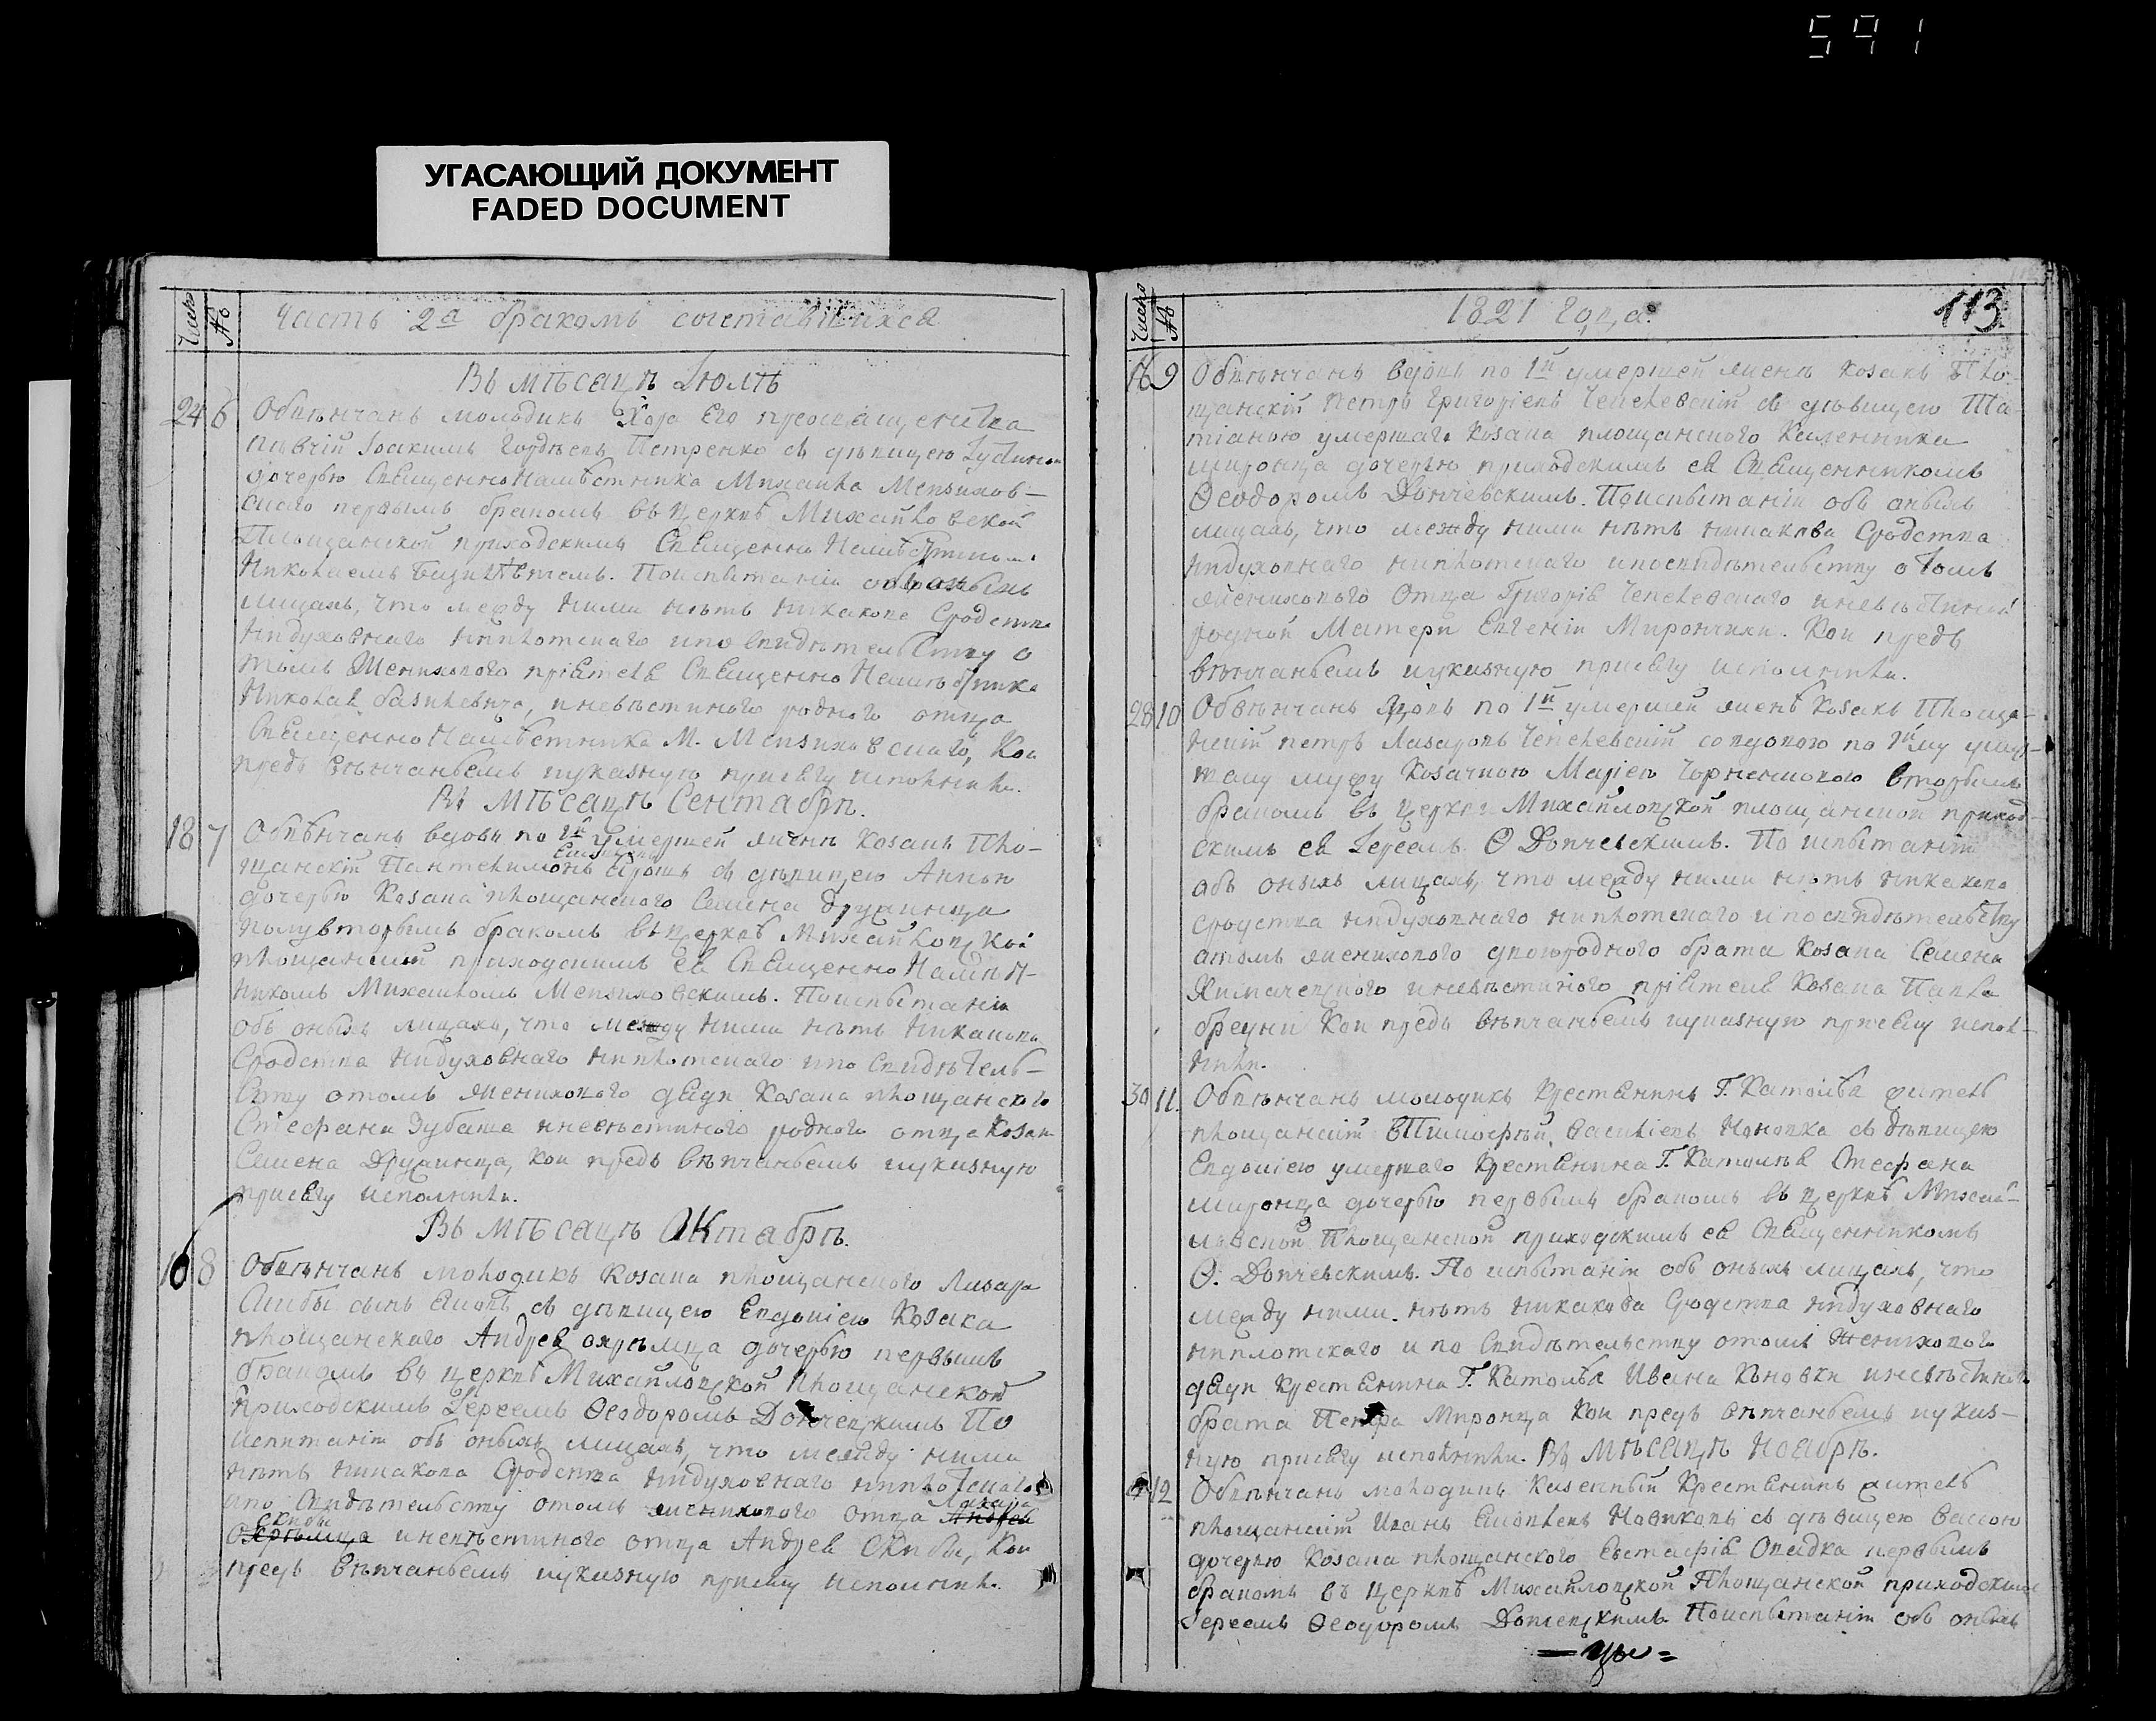 591
УГАСАЮЩИЙ ДОКУМЕНТ
FADED DOCUMENT
Число
№
Часть 2а бракомъ сочетавшихся
Въ мѣсяцѣ Іюлѣ
24 6 Обвѣнчанъ молодикъ Хора Его преосвященства
пѣвчій Іоакимъ Гордѣевъ Петренко съ дѣвицею
дочерью СвященноНамѣстника Михаила Мензихов-
скаго первымъ бракомъ въ церквѣ Михайловской
Площанской приходскимъ Священно
Николаемъ. Поиспытаніи
лицахъ, что между ними нѣтъ никакова сродства
нидуховнаго ниплотскаго ипо свидѣтельству о
томъ жениховаго пріятеля Священно Намѣстника
Николая Базилевича, иневѣстиного родного отца
СвященноНамѣстника М. Мензиховскаго, Кои
предъ вѣнчаньемъ иуказную присягу исполнили.
Въ мѣсяцѣ Сентябрѣ.
18 7 Обвѣнчанъ вдовъ по 1й умершей женѣ Козакъ Пло-
щанскій Пантелимонъ съ дѣвицею Анною
дочерью Козака площанского Семена Друхинца
полувторымъ бракомъ въ церквѣ Михайловской
площанской приходскимъ ея Священно
Михаиломъ Мензиховскимъ. Поиспытаніи
объ оныхъ лицахъ, что между ними нѣтъ никакова
Сродства нидуховнаго ниплотскаго ипо Свидѣтель-
ству отомъ жениховаго дяди Козака площанского
Стефана Зубаша иневѣстиного родного отца Козака
Семена Друхинца, кои предъ вѣнчаньемъ иуказную
присягу исполнили.
Въ мѣсяцѣ Октябрѣ.
16 8 Обвѣнчанъ молодикъ Козака площанского Лазара
Скибы сынъ съ дѣвицею Евдокіею Козака
площанскаго Андрея дочерью первымъ
бракомъ въ церквѣ Михайловской Площанской
приходскимъ Іереемъ Ѳеодоромъ Дончевскимъ По
испитаніи объ оныхъ лицахъ, что между ними
нѣтъ никакова Сродства нидуховнаго ниплотскаго
ипо Свидѣтельству отомъ жениховаго отца Лазара
Скибы иневѣстиного отца Андрея Скибы, Кои
предъ вѣнчаньемъ иуказную присягу исполнили.
Число
№
1821 Года.
113.
9 Обвѣнчанъ вдовъ по 1й умершей женѣ Козакъ Пло-
щанскій Петръ Григоріевъ Чепелевскій съ дѣвицею Та-
тіаною умершаго Козака площанского Каленника
миронца дочерью приходскимъ ея Священникомъ
Ѳеодоромъ Дончевскимъ. Поиспытаніи объ оныхъ
лицахъ, что между ними нѣтъ никакова Сродства
нидуховнаго ниплотскаго ипосвидѣтельству отомъ
жениховаго Отца Григорія Чепелевскаго иневѣстиной
родной Матери Евгеніи Мирончихи. Кои предъ
вѣнчаньемъ иуказную присягу исполнили.
28 10 Обвѣнчанъ вдовъ по 1й умершей женѣ Козакъ Площа-
нскій Петръ Лазаровъ Чепелевскій совдовою по 1му умер-
шему мужу Козачкою Маріею вторымъ
бракомъ въ церквѣ Михайловской площанской приход-
скимъ ея Іереемъ Ѳ Дончевскимъ. По испытаніи
объ оныхъ лицахъ, что между ними нѣтъ никакова
сродства нидуховнаго ниплотскаго ипосвидѣтельству
отомъ жениховаго двоюродного брата Козака Семена
иневѣстиного пріятеля Козака Павла
бредни Кои предъ вѣнчаньемъ иуказную присягу испол-
нили.
30 11. Обвѣнчанъ молодикъ Крестянинъ Г. житель
площанскій Тимофѣй Василіевъ съ дѣвицею
Евдокіею умершаго Крестянина Г. Стефана
миронца дочерью первымъ бракомъ въ церквѣ Михай-
ловской Площанской приходскимъ ея Священникомъ
Ѳ. Дончевскимъ. По испытаніи объ оныхъ лицахъ, что
между ними нѣтъ никакова Сродства нидуховнаго
ниплотскаго и по Свидѣтельству отомъ Жениховаго
дяди Крестянина Г. Ивана иневѣстиного
брата Петра Миронца Кои предъ вѣнчаньемъ иуказ-
ную присягу исполнили. Въ Мѣсяцѣ Ноябрѣ.
12 Обвѣнчанъ молодикъ Казенный Крестянинъ житель
площанскій Иванъ Новиковъ съ дѣвицею Вассою
дочерью Козака площанского Евстафія первымъ
бракомъ въ церквѣ Михайловской Площанской приходскимъ
Іереемъ Ѳеодоромъ Дончевскимъ. Поиспытаніи объ оныхъ